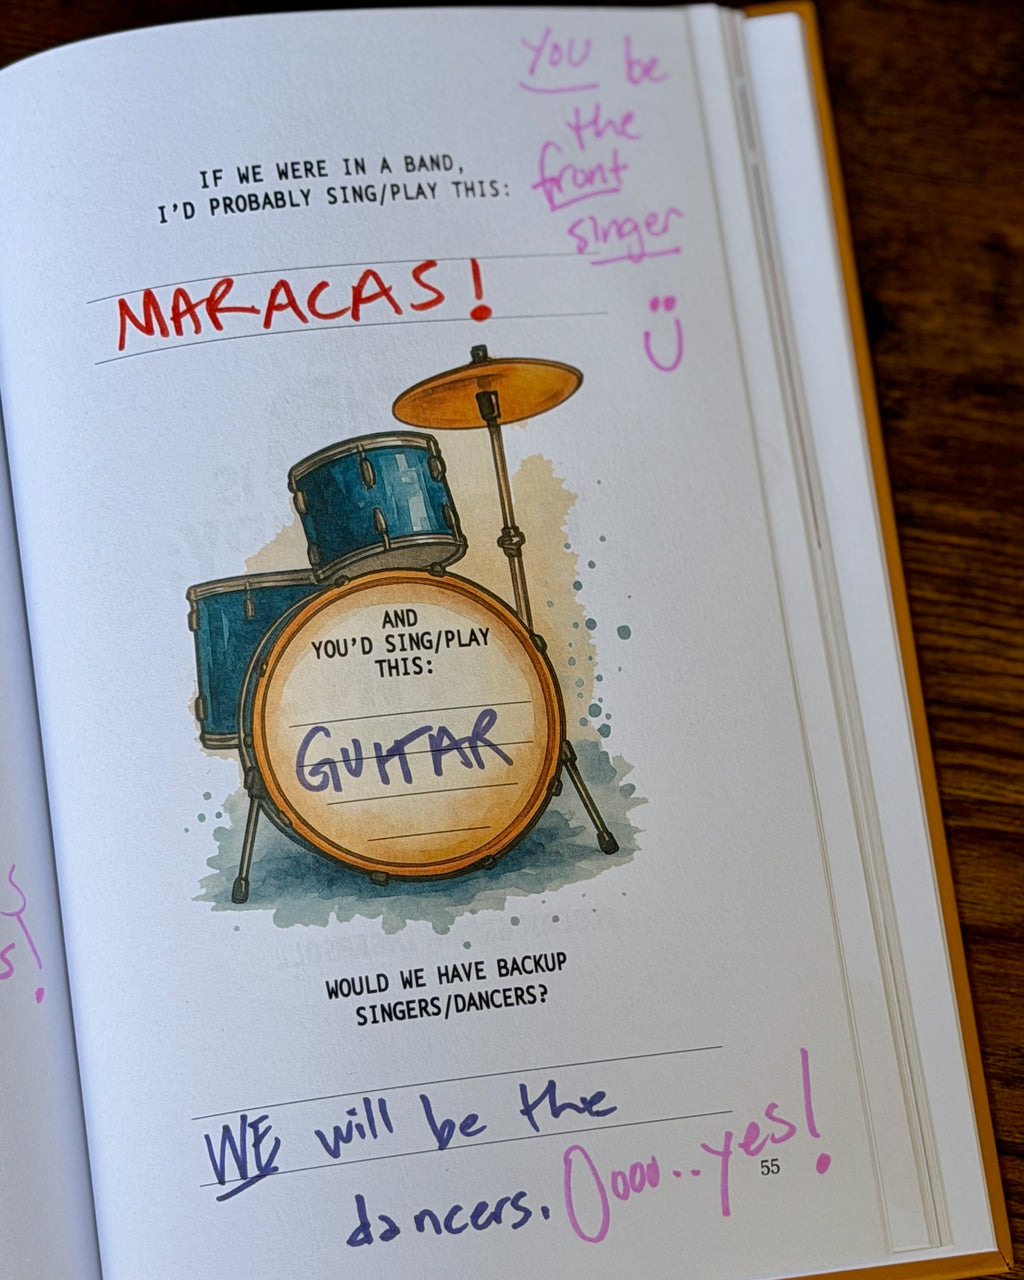 YOU be
the
front
singer
IF WE WERE IN A BAND,
I'D PROBABLY SING/PLAY THIS:
MARACAS!
AND
YOU'D SING/PLAY
THIS:
GUITAR
WOULD WE HAVE BACKUP
SINGERS/DANCERS?
WE will be the
dancers. Oooo..yes!
55